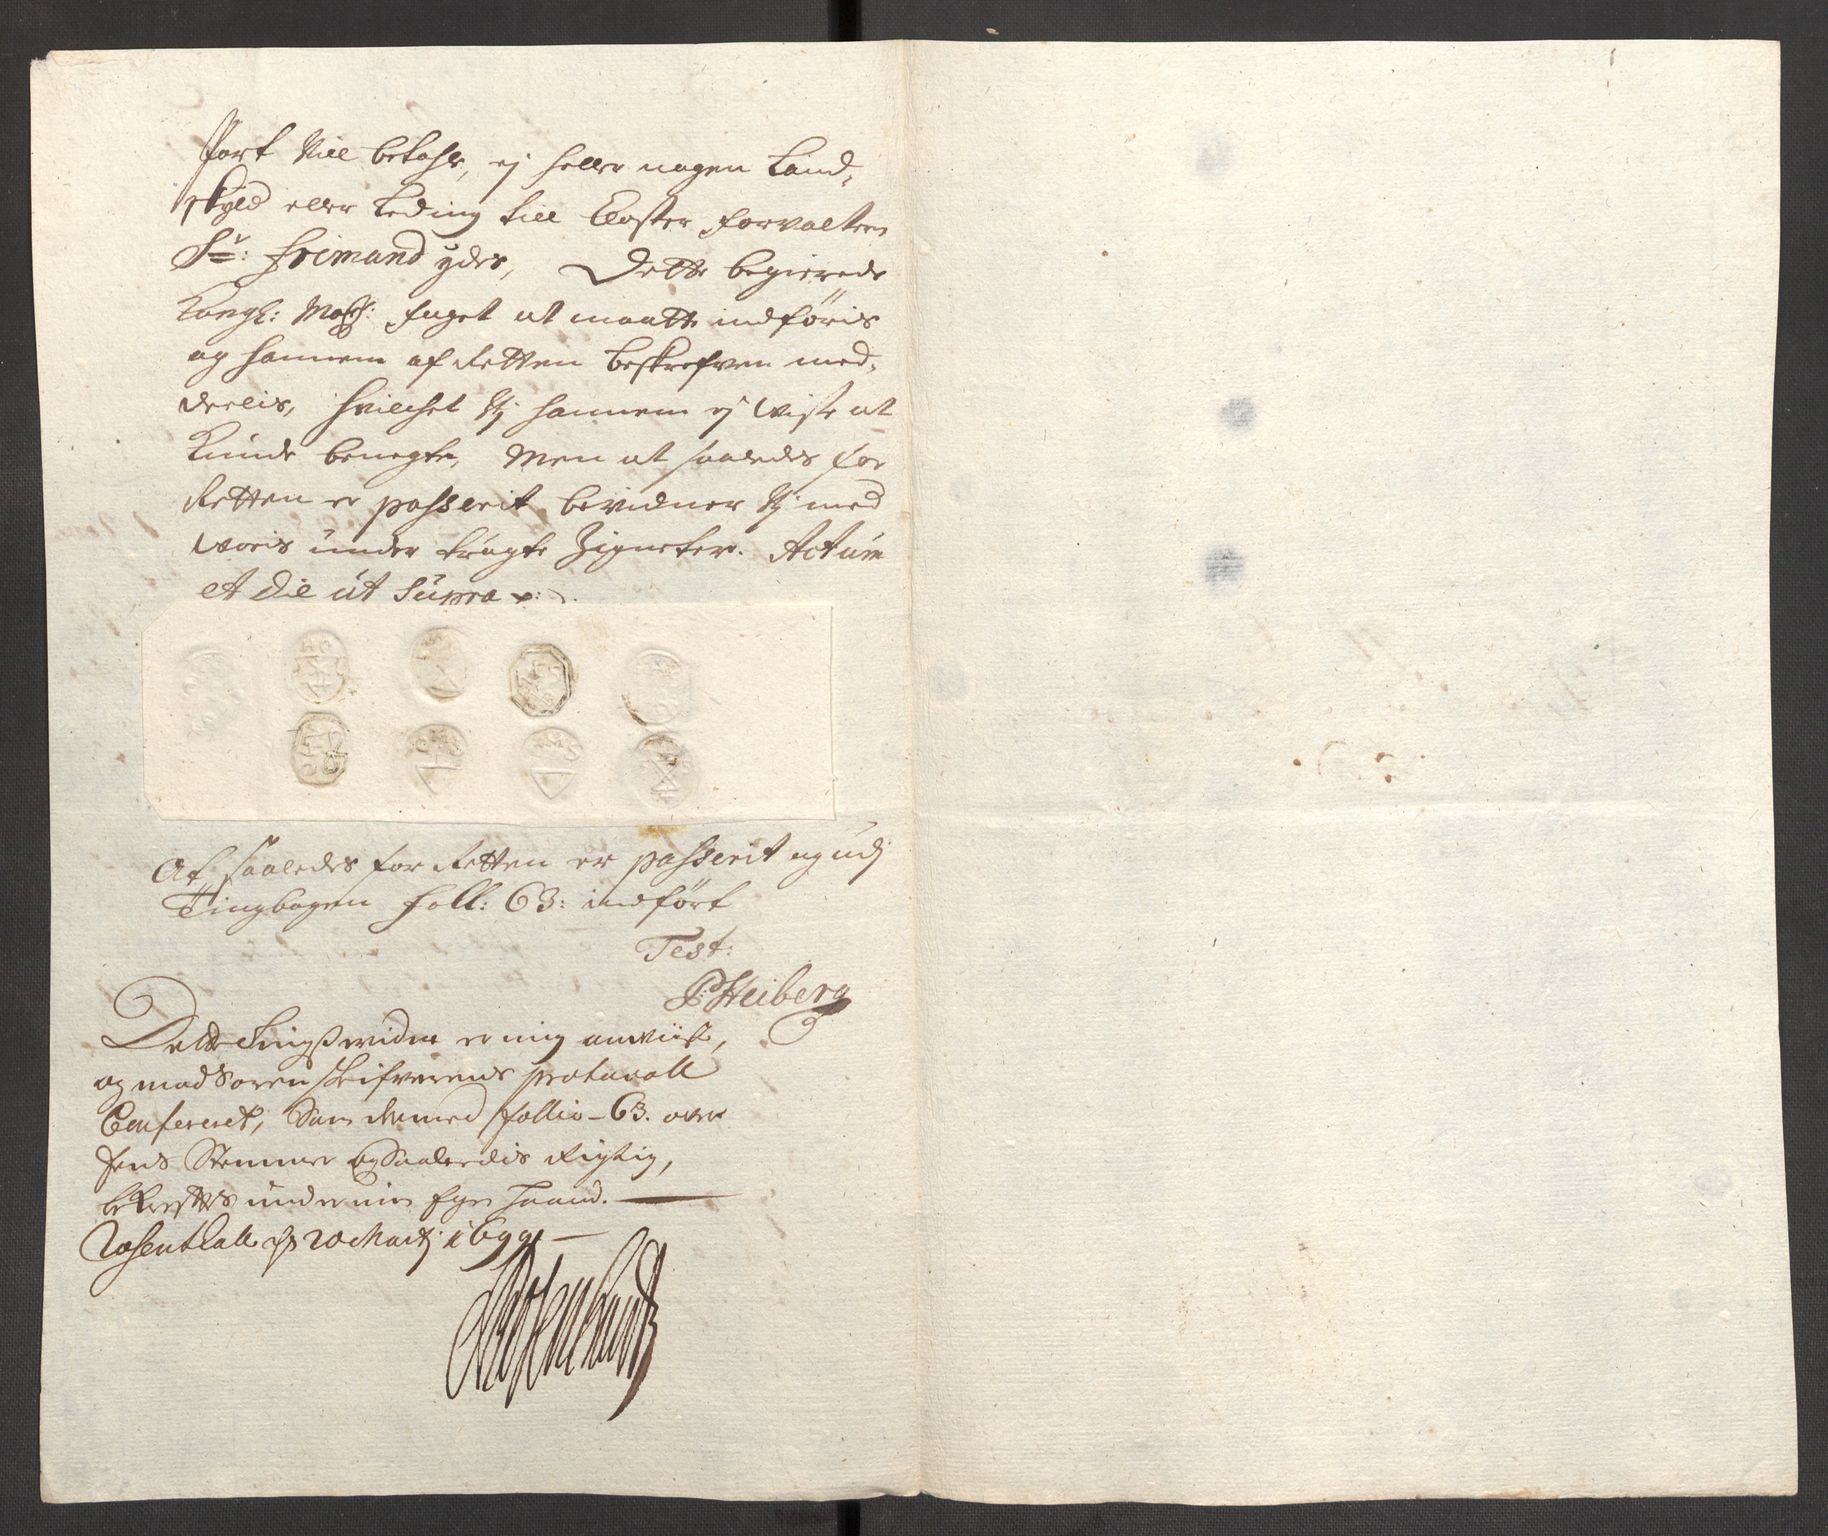 Part vill betahle, ej heller nogen Land,
skyld eller Leding till Closter forvalteren
Sr: Frimand ydes, Dette begierede
Kongl: Maysts: foget at maatte indføris
og hannem af Retten beskrefven med,
deelis, hvilchet vj hannem ej viste at
Kunde benegte, Men at saaledes for
Retten er passerit bevidner vj med
voris under trøgte Zigneter. Actum
et die ut Supra
At saaledes for Retten er passerit og udj
Tingbogen foll: 63: indført
Test:
P: Heiberg
Dette Tingsvidne er mig anviist,
og med Soren skrifverens protocoll
Confereret, Som dermed follio - 63. over
Eens Stemmer og Saaleedis Rigtig,
bekrefftes under min Egen haand.
Rosendall d 20 Martj 1699